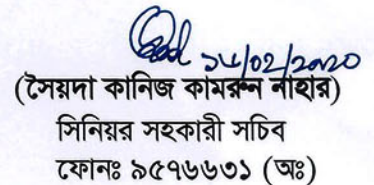 ১৮/০২/২০২০
(সৈয়দা কানিজ কামরুন নাহার)
সিনিয়র সহকারী সচিব
ফোনঃ ৯৫৭৬৬৩১ (অঃ)